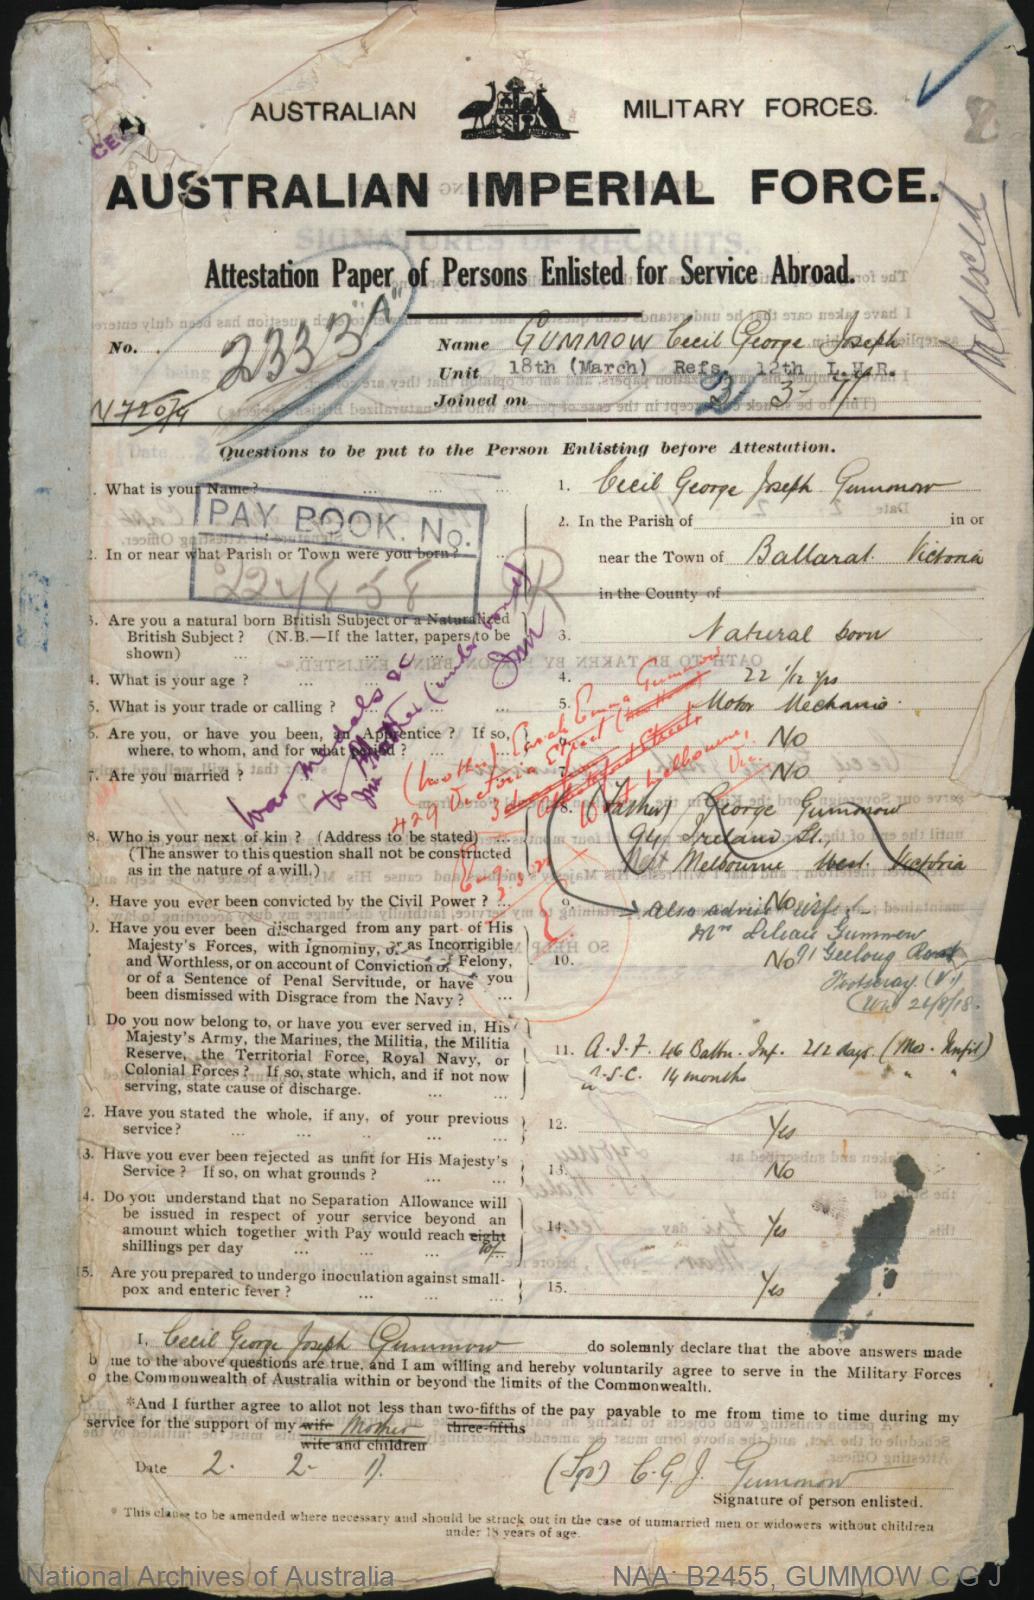 AUSTRALIAN MILITARY FORCES.
AUSTRALIAN IMPERIAL FORCE.
Attestation Paper of Persons Enlisted for Service Abroad.
No. 2333 "A"
N72079
Name GUMMOW Cecil George Joseph
Unit 18th (March) Refs. 12th L.H.R.
Joined on 2 3 17
Maxsted
Questions to be put to the Person Enlisting before Attestation.
1. What is your Name? ... 1. Cecil George Joseph Gummow
PAY BOOK. No.
224858
2. In or near what Parish or Town were you born? ... 2. In the Parish of in or
near the Town of Ballarat Victoria
in the County of
3. Are you a natural born British Subject or a Naturalized
British Subject? (N.B.—If the latter, papers to be
shown) ... 3. Natural born
4. What is your age? ... 4. 22 1/12 yrs
5. What is your trade or calling? ... 5. Motor Mechanic
6. Are you, or have you been, an Apprentice? If so,
where, to whom, and for what period? ... No
7. Are you married? ... 7. No
War medals &c
to Mother (under bond)
(mother) Sarah Emma Gummow
429 Victoria Street
West Melbourne,
Vic.
8. Who is your next of kin? (Address to be stated) ...
(The answer to this question shall not be constructed
as in the nature of a will.)
8. (Father) George Gummow
94 Ireland St.,
West Melbourne West Victoria
9. Have you ever been convicted by the Civil Power? ... 9. No
Also advise wife -
Mrs Lilian Gummow
91 Geelong Road
Footscray. (V.)
26/8/18.
10. Have you ever been discharged from any part of His
Majesty's Forces, with Ignominy, or as Incorrigible
and Worthless, or on account of Conviction of Felony,
or of a Sentence of Penal Servitude, or have you
been dismissed with Disgrace from the Navy? ... 10. No
11. Do you now belong to, or have you ever served in, His
Majesty's Army, the Marines, the Militia, the Militia
Reserve, the Territorial Force, Royal Navy, or
Colonial Forces? If so, state which, and if not now
serving, state cause of discharge.
11. A.I.F. 46 Battn. Inf. 212 days (Med. Unfit)
A.S.C. 14 months " "
12. Have you stated the whole, if any, of your previous
service? ... 12. Yes
13. Have you ever been rejected as unfit for His Majesty's
Service? If so, on what grounds? ... 13. No
14. Do you understand that no Separation Allowance will
be issued in respect of your service beyond an
amount which together with Pay would reach eight
shillings per day 10/- ... 14. Yes
15. Are you prepared to undergo inoculation against small-
pox and enteric fever? ... 15. Yes
I, Cecil George Joseph Gummow do solemnly declare that the above answers made
by me to the above questions are true, and I am willing and hereby voluntarily agree to serve in the Military Forces
of the Commonwealth of Australia within or beyond the limits of the Commonwealth.
*And I further agree to allot not less than two-fifths of the pay payable to me from time to time during my
three-fifths
service for the support of my wife Mother
wife and children
Date 2. 2. 17. (Sgd) C.G.J. Gummow
Signature of person enlisted.
* This clause to be amended where necessary and should be struck out in the case of unmarried men or widowers without children
under 18 years of age.
National Archives of Australia NAA: B2455, GUMMOW C G J